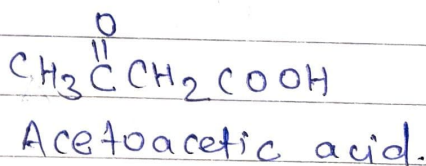 O
||
CH₃ C CH₂ COOH
Acetoacetic acid.